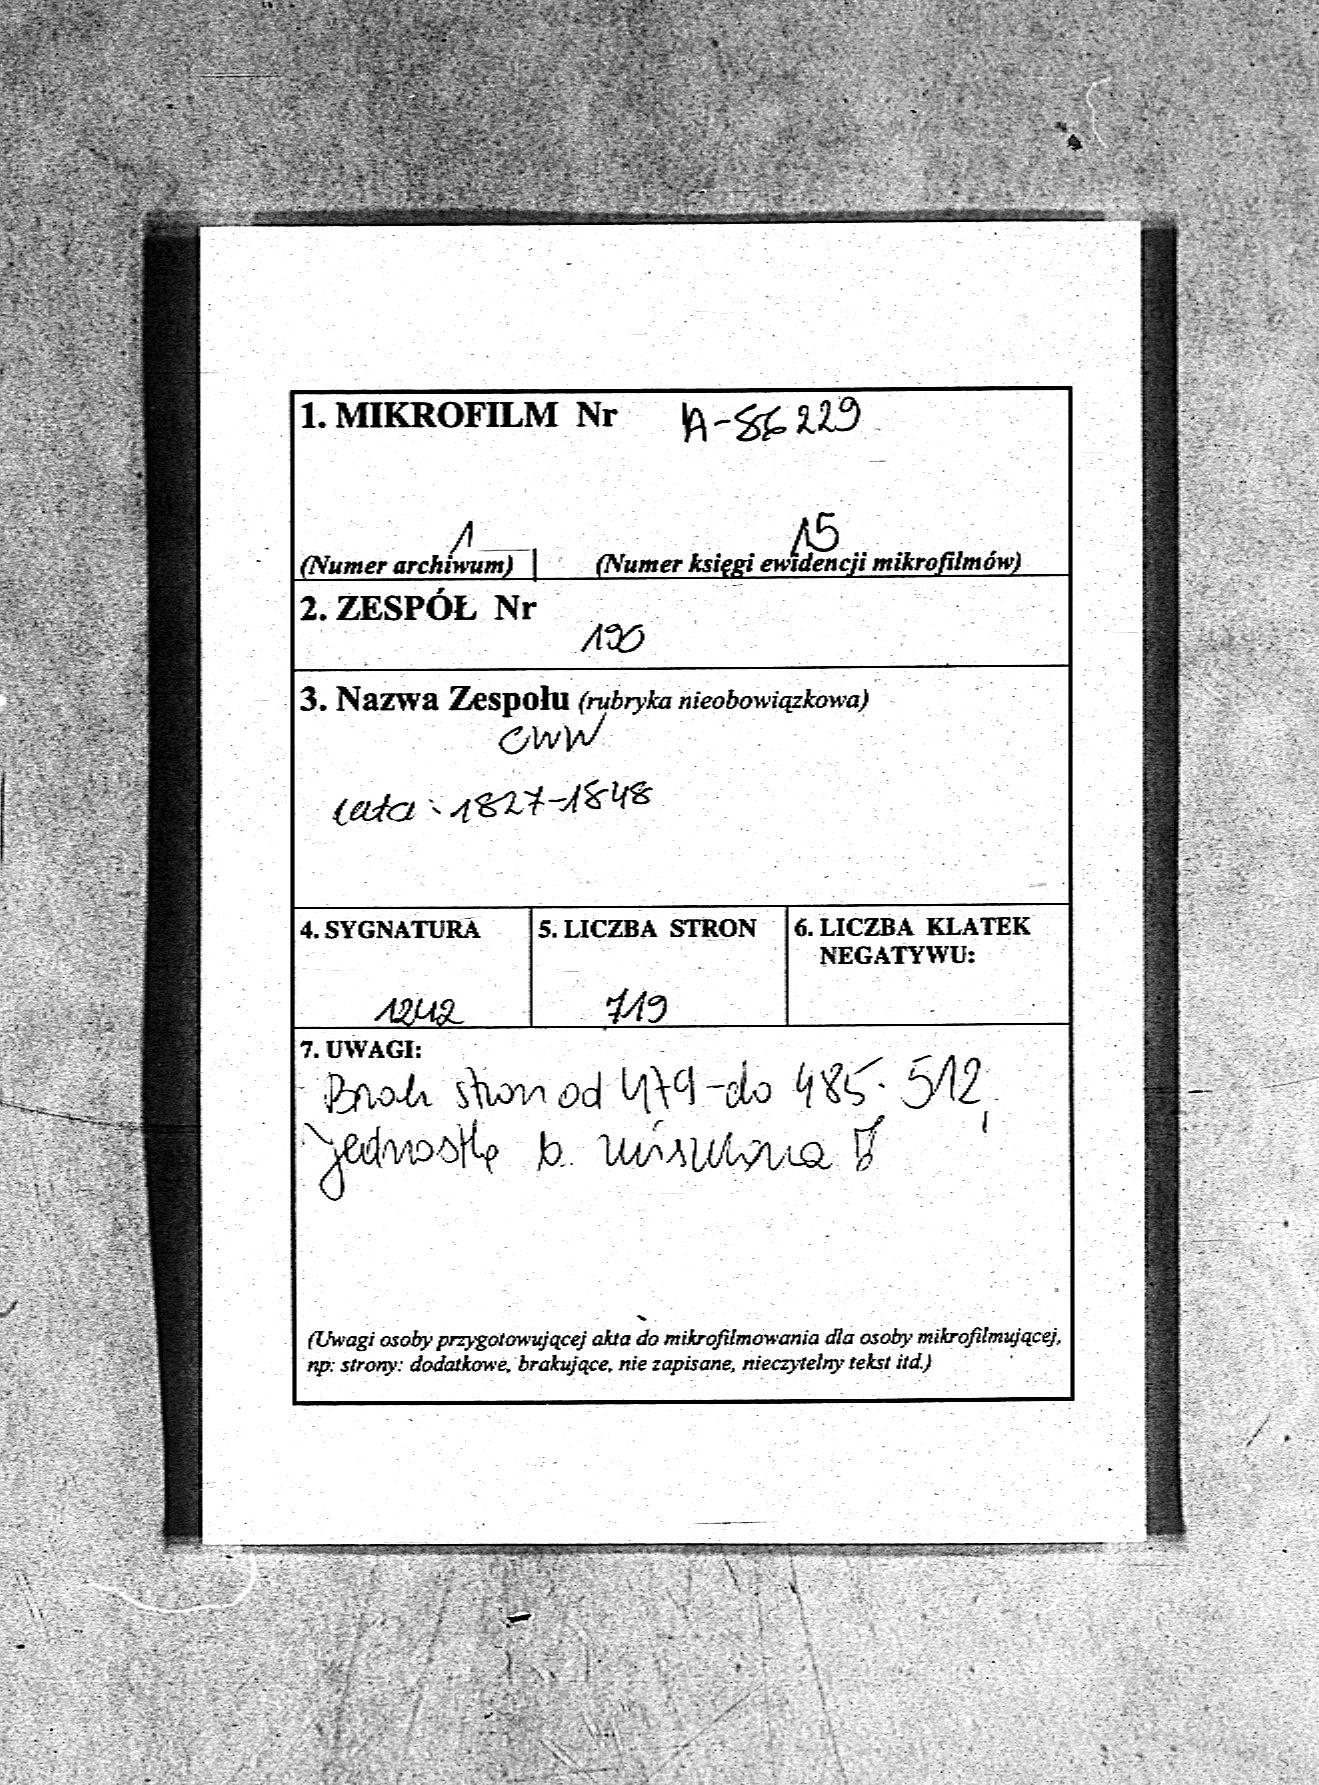 1. MIKROFILM Nr A-86229
1 15
(Numer archiwum) (Numer księgi ewidencji mikrofilmów)
2. ZESPÓŁ Nr
190
3. Nazwa Zespołu (rubryka nieobowiązkowa)
CWW
lata: 1827-1848
4. SYGNATURA 5. LICZBA STRON 6. LICZBA KLATEK
NEGATYWU:
1242 719
7. UWAGI:
Brak stron od 479-do 485. 512,
jednostkę b. zniszczona !
(Uwagi osoby przygotowującej akta do mikrofilmowania dla osoby mikrofilmującej,
np: strony: dodatkowe, brakujące, nie zapisane, nieczytelny tekst itd.)